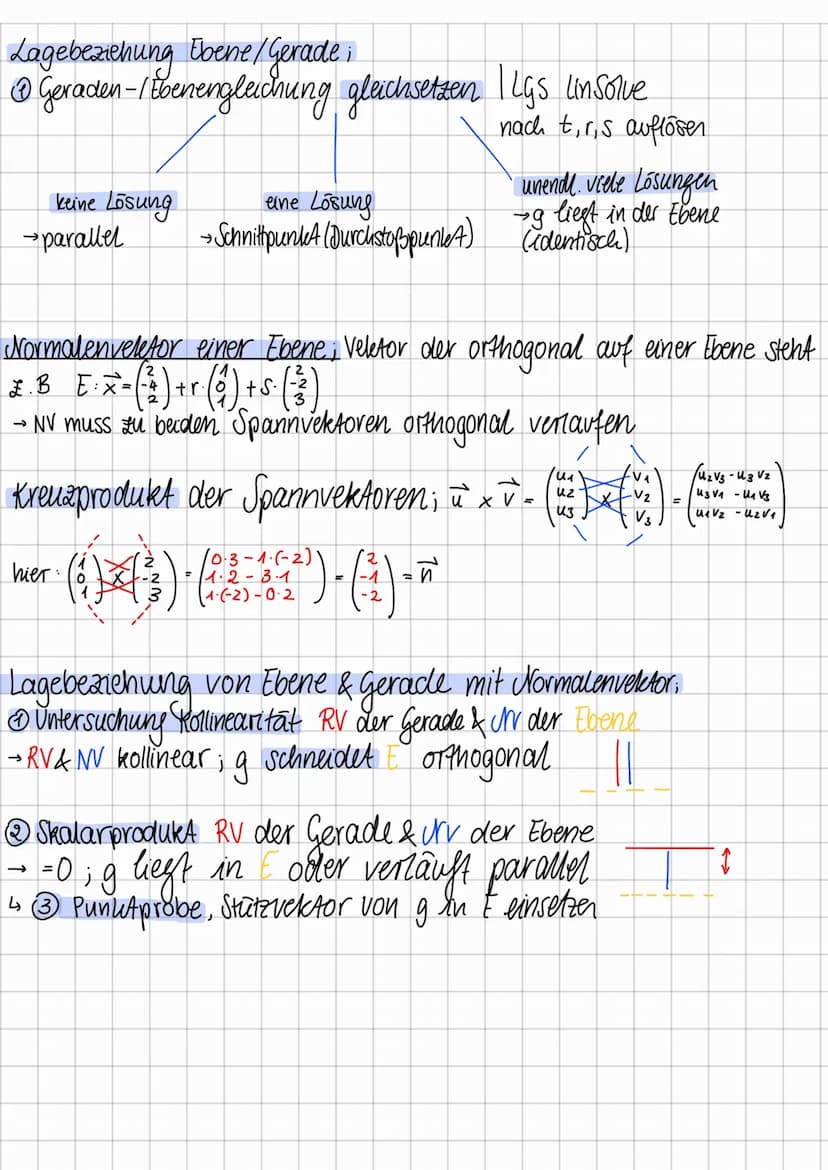 Lagebeziehung Ebene/Gerade;
① Geraden-/Ebenengleichung gleichsetzen | LGS linsolve
nach t,r,s auflösen
keine Lösung
→ parallel
eine Lösung
→ Schnittpunkt (Durchstoßpunkt)
unendl. viele Lösungen
→ g liegt in der Ebene
(identisch)
Normalenvektor einer Ebene; Vektor der orthogonal auf einer Ebene steht
z.B E: x⃗ = (2 -4 2) + r·(1 0 1) + s·(2 -2 3)
→ NV muss zu beiden Spannvektoren orthogonal verlaufen
Kreuzprodukt der Spannvektoren; u⃗ × v⃗ = (u1 u2 u3) × (v1 v2 v3) = (u2v3 - u3v2 u3v1 - u1v3 u1v2 - u2v1)
hier: (1 0 1) × (2 -2 3) = (0·3-1·(-2) 1·2-3·1 1·(-2)-0·2) = (2 -1 -2) = n⃗
Lagebeziehung von Ebene & Gerade mit Normalenvektor;
① Untersuchung Kollinearität RV der Gerade & NV der Ebene
→ RV & NV kollinear; g schneidet E orthogonal
② Skalarprodukt RV der Gerade & NV der Ebene
→ =0; g liegt in E oder verläuft parallel
↳ ③ Punktprobe, Stützvektor von g in E einsetzen